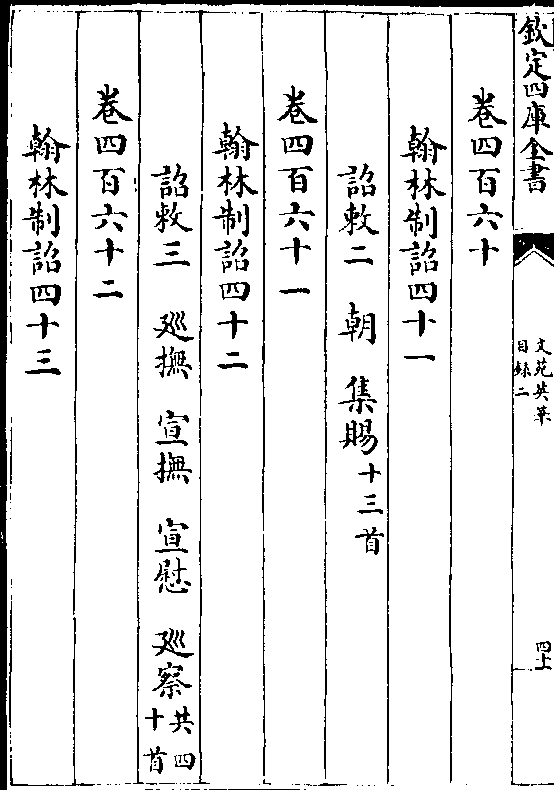 欽定四庫全書
文苑英華
目録二
四上
卷四百六十
翰林制詔四十一
詔敕二 朝 集賜十三首
卷四百六十一
翰林制詔四十二
詔敕三 廵撫 宣撫 宣慰 廵察共四十首
卷四百六十二
翰林制詔四十三